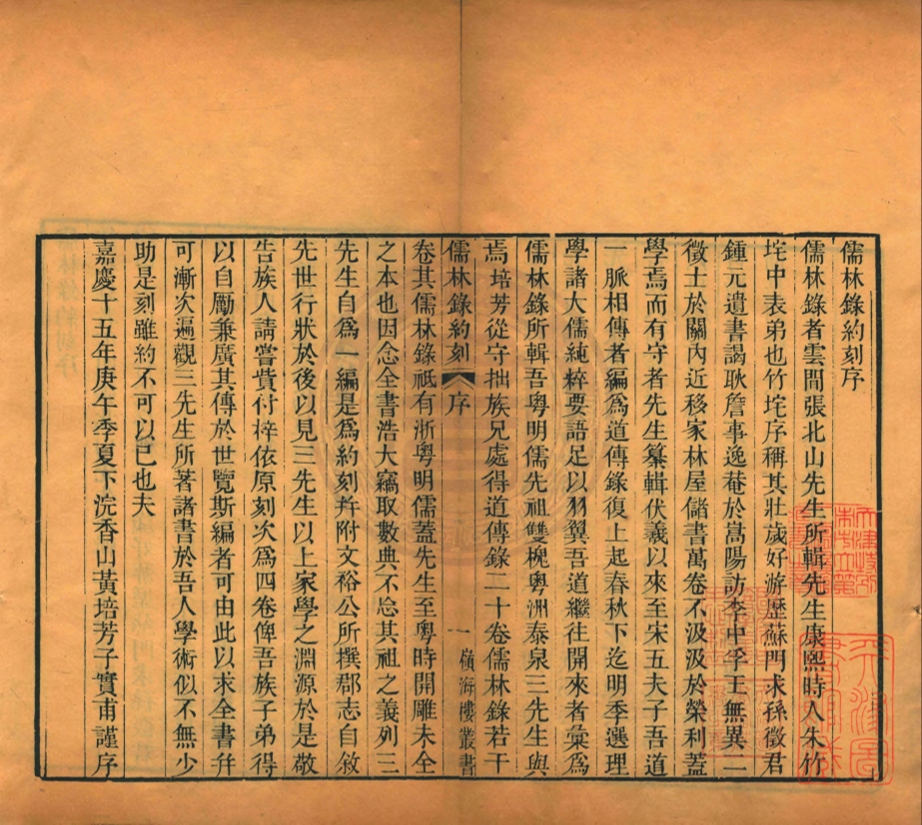 儒林錄約刻序
儒林錄者雲間張北山先生所輯先生康熙時人朱竹
垞中表弟也竹垞序稱其壯歲好游歷蘇門求孫徵君
鍾元遺書謁耿詹事逸菴於嵩陽訪李中孚王無異二
徵士於關內近移家林屋儲書萬卷不汲汲於榮利蓋
學焉而有守者先生纂輯伏羲以來至宋五夫子吾道
一脈相傳者編爲道傳錄復上起春秋下迄明季選理
學諸大儒純粹要語足以羽翼吾道繼往開來者彙爲
儒林錄所輯吾粵明儒先祖雙槐粵洲泰泉三先生與
焉培芳從守拙族兄處得道傳錄二十卷儒林錄若干
儒林錄約刻 序 一 嶺海樓叢書
卷其儒林錄祗有浙粵明儒蓋先生至粵時開雕未全
之本也因念全書浩大竊取數典不忘其祖之義列三
先生自爲一編是爲約刻幷附文裕公所撰郡志自敘
先世行狀於後以見三先生以上家學之淵源於是敬
告族人請嘗貲付梓依原刻次爲四卷俾吾族子弟得
以自勵兼廣其傳於世覽斯編者可由此以求全書幷
可漸次遍觀三先生所著諸書於吾人學術似不無少
助是刻雖約不可以已也夫
嘉慶十五年庚午季夏下浣香山黃培芳子實甫謹序